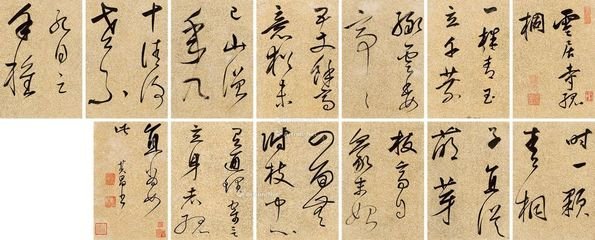 雲居寺孤
桐
一株青玉
立千葉
綠雲委
亭〻
五丈餘高
意猶未
已山僧
年九
十清淨
老不
死自云
手種
時一顆
青桐
子直從
萌芽
拔高自
毫末始
四面無
附枝中心
有通理寄言
立身者孤
直當如
此
其昌書